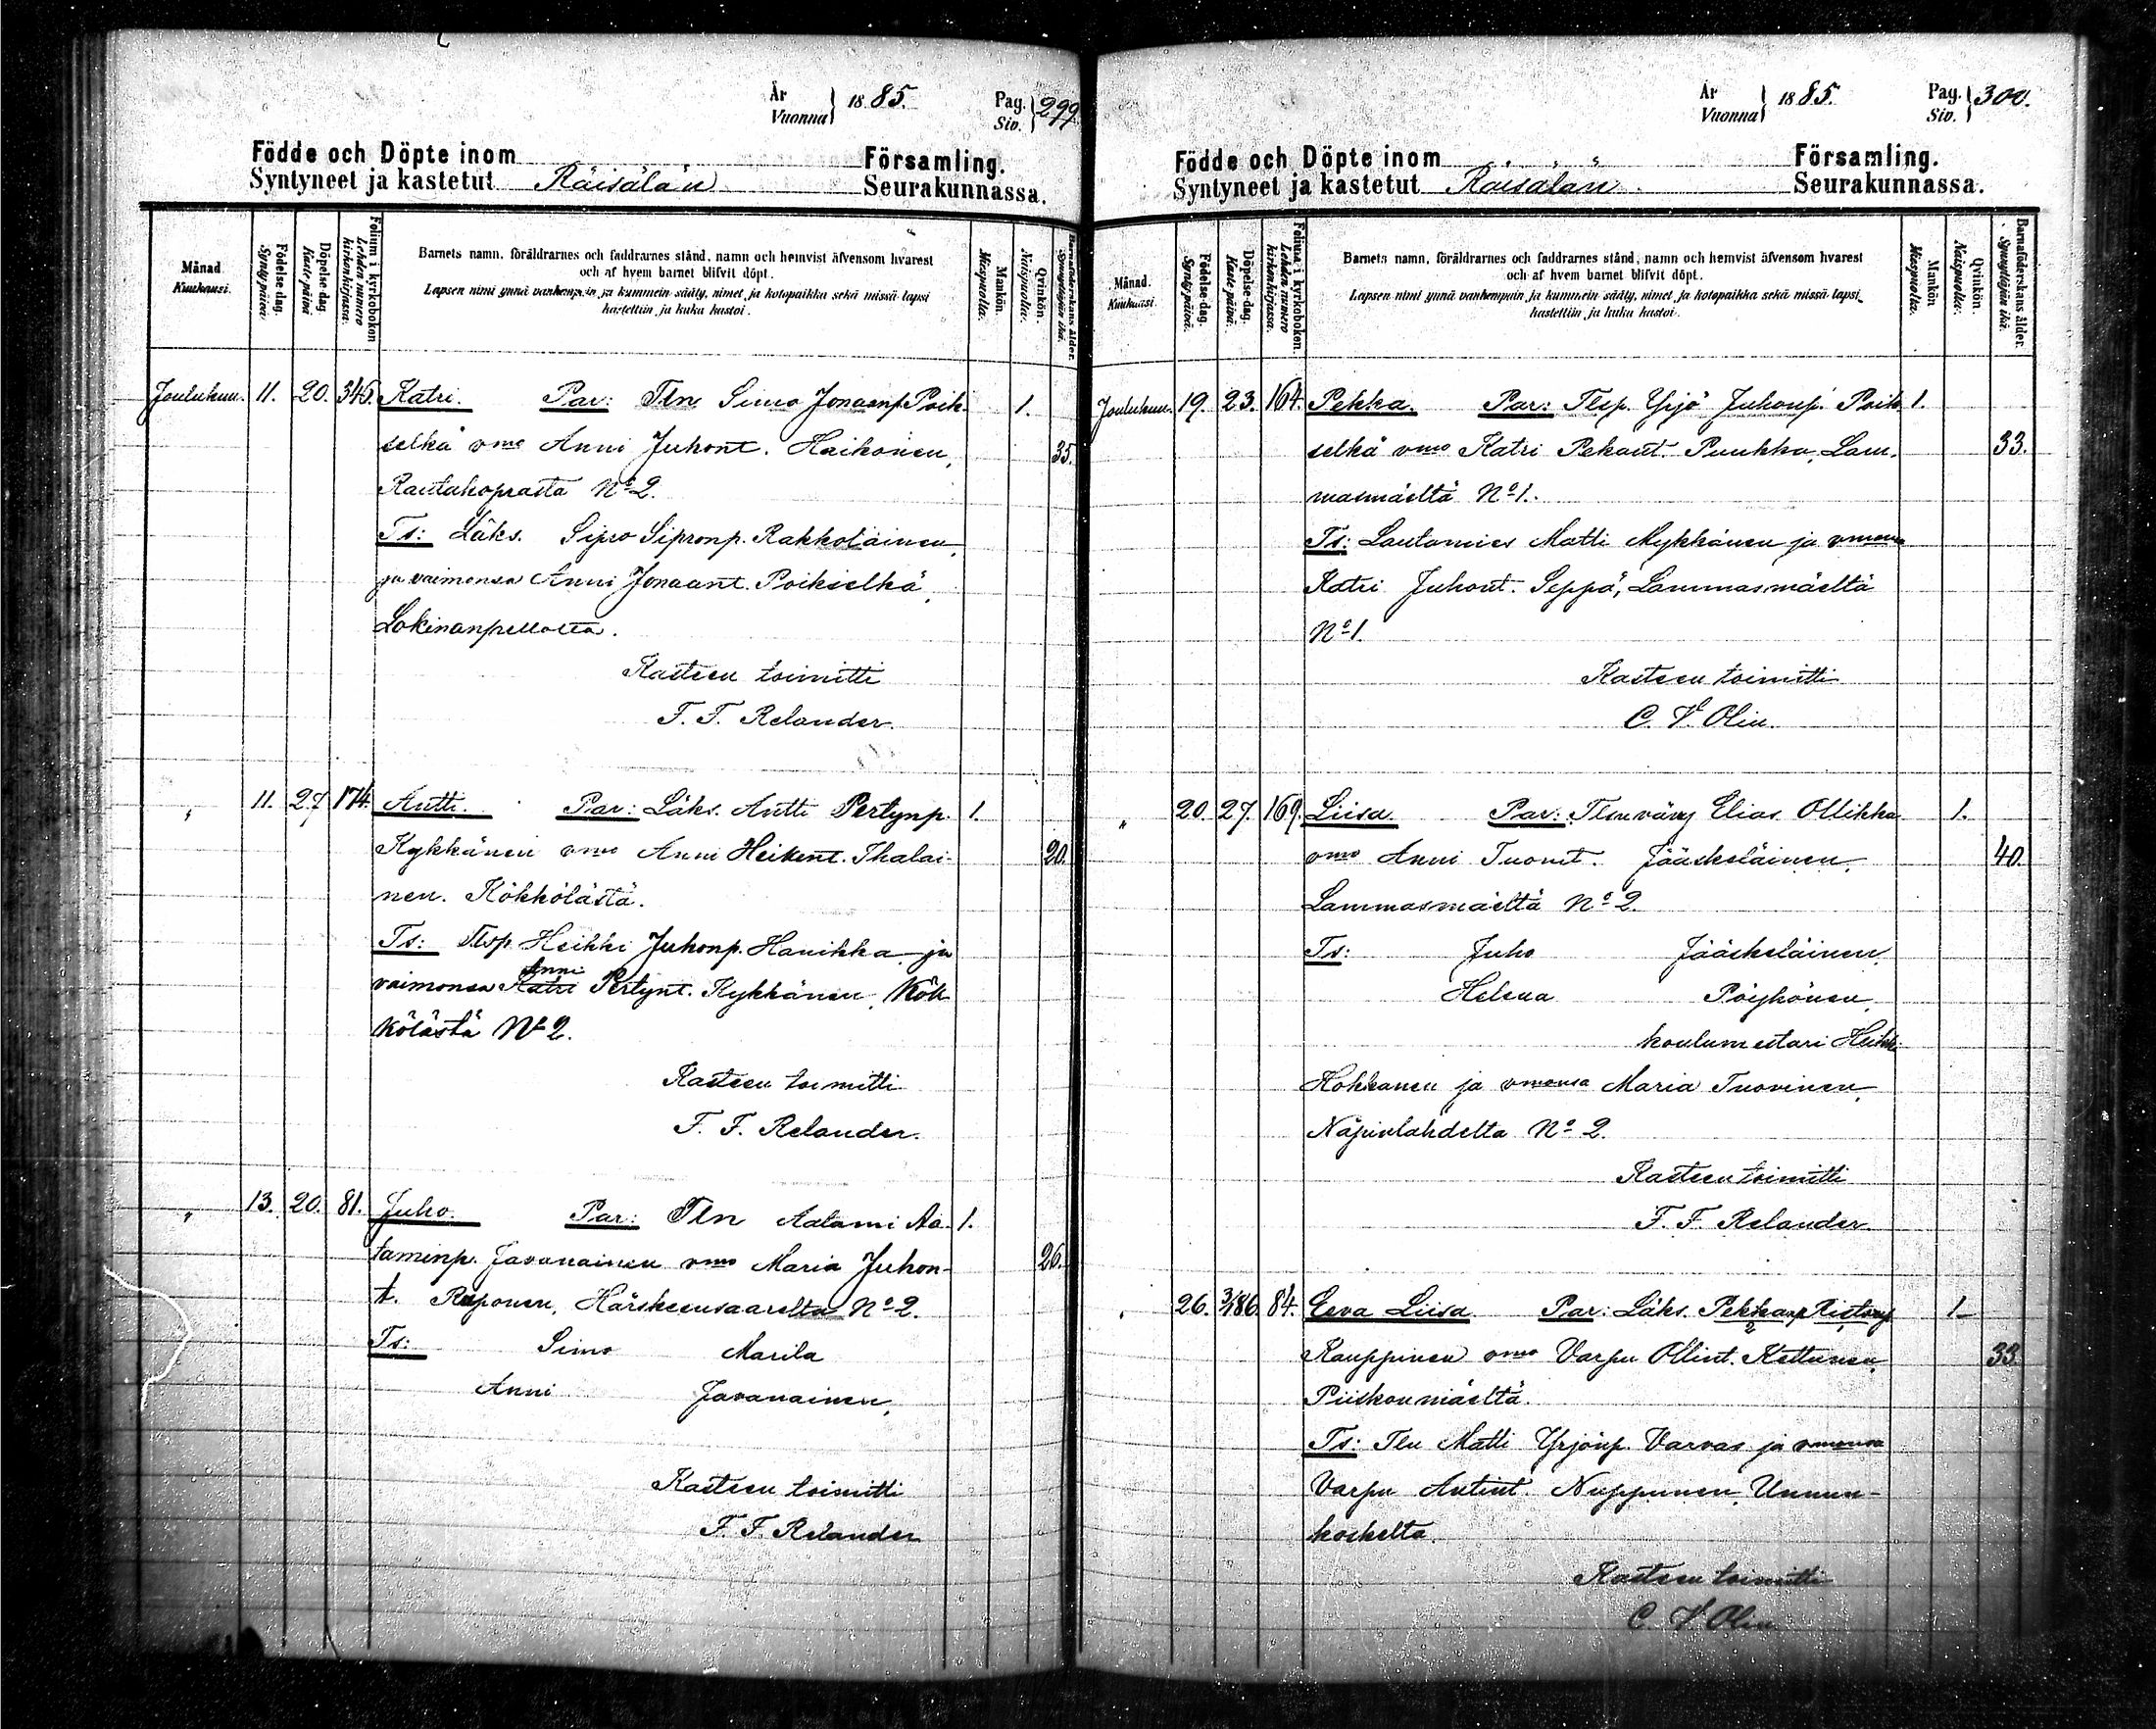 År
Vuonna } 1885. Pag.
Siv. } 299
Födde och Döpte inom Församling.
Syntyneet ja kastetut Räisälän Seurakunnassa.
Månad.
Kuukausi.
Födelse-dag.
Syntypäivä.
Döpelse-dag.
Kaste-päivä.
Folium i kyrkoboken
Lehden numero
kirkonkirjassa.
Barnets namn, föräldrarnes och faddrarnes stånd, namn och hemvist äfvensom hvarest
och af hvem barnet blifvit döpt.
Lapsen nimi ynnä vanhempain ja kummein sääty, nimet ja kotopaikka sekä missä lapsi
kastettiin ja kuka kastoi.
Mankön.
Miespuolia.
Qvinkön.
Naispuolia.
Barnaföderskans ålder.
Synnyttäjän ikä.
Joulukuu. 11. 20. 345. Katri. Par: Tln Simo Jonaanp. Poik- 1.
selkä vmo Anni Juhont. Haikonen, 35.
Rautakoprasta No 2.
Ts: Läks. Sipro Sipronp. Rakkolainen,
ja vaimonsa Anni Jonaant. Poikselkä,
Lokinanpellolta.
Kasteen toimitti
F. F. Relander.
" 11. 27. 174. Antti. Par: Läks. Antti Pertynp. 1.
Kykkänen vmo Anni Heikint. Ihalai- 20.
nen. Kökkölästä.
Ts: Tlsp. Heikki Juhonp. Hanikka ja
Anni
vaimonsa Katri Pertynt. Kykkänen, Kök
kölästä No 2.
Kasteen toimitti
F. F. Relander.
" 13. 20. 81. Juho. Par: Tln Aatami Aa- 1.
taminp. Javanainen vmo Maria Juhon- 26.
t. Reponen, Härskeensaarelta No 2.
Ts: Simo Marila
Anni Javanainen,
Kasteen toimitti
F. F. Relander
År
Vuonna } 1885. Pag.
Siv. } 300.
Födde och Döpte inom Församling.
Syntyneet ja kastetut Räisälän Seurakunnassa.
Månad.
Kuukausi.
Födelse-dag.
Syntypäivä.
Döpelse-dag.
Kaste-päivä.
Folium i kyrkoboken.
Lehden numero
kirkonkirjassa.
Barnets namn, föräldrarnes och faddrarnes stånd, namn och hemvist äfvensom hvarest
och af hvem barnet blifvit döpt.
Lapsen nimi ynnä vanhempain ja kummein sääty, nimet ja kotopaikka sekä missä lapsi
kastettiin ja kuka kastoi.
Mankön.
Miespuolia.
Qvinkön.
Naispuolia.
Barnaföderskans ålder.
Synnyttäjän ikä.
Joulukuu. 19. 23. 164. Pekka. Par: Tlsp. Yrjö Juhonp. Poik 1.
selkä vmo Katri Pekant. Puukka, Lam- 33.
masmäeltä No 1.
Ts: Lautamies Matti Mykkänen ja vmonsa
Katri Juhont. Seppä, Lammasmäeltä
No 1.
Kasteen toimitti
C. V. Olin.
" 20. 27. 169. Liisa. Par: Tlnvävy Elias Ollikka 1.
vmo Anni Tuomt. Jääskeläinen, 40.
Lammasmäeltä No 2.
Ts: Juho Jääskeläinen,
Helena Pöyhönen,
koulumestari Heikki
Kokkanen ja vmonsa Maria Tuovinen,
Näpinlahdelta No 2.
Kasteen toimitti
F. F. Relander
" 26. 3/1 86. 84. Eeva Liisa Par: Läks. Pekkanp 1
Kauppinen vmo Varpu Ollint. Kettunen, 33.
Piiskonmäeltä.
Ts: Tln Matti Yrjönp. Varvas ja vmonsa
Varpu Antint. Nuppunen, Unnun-
koskelta.
Kasteen toimitti
C. V. Olin